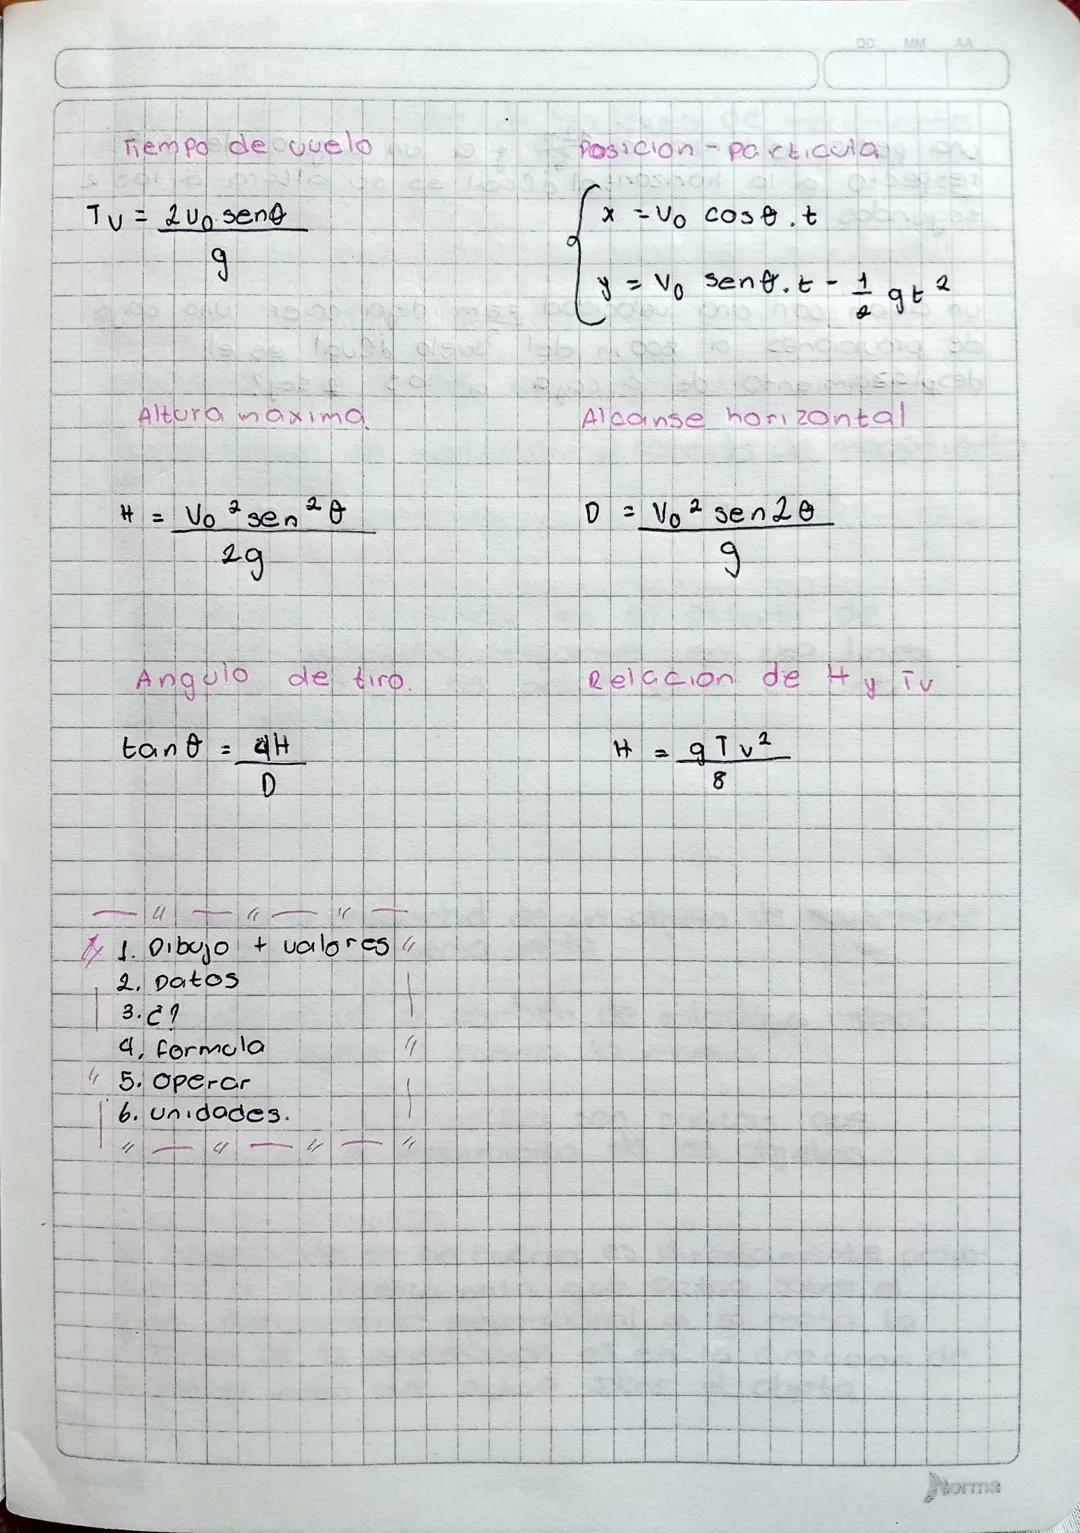 DD MM AA
Tiempo de vuelo
Tv = 2v₀ senθ / g
Posicion - particula
x = v₀ cosθ . t
y = v₀ senθ . t - 1/2 gt²
Altura maxima
H = V₀² sen²θ / 2g
Alcanse horizontal
D = V₀² sen2θ / g
Angulo de tiro.
tanθ = 4H / D
Relacion de H y Tv
H = gTv² / 8
1. Dibujo + valores
2. Datos
3. ¿?
4. formula
5. operar
6. unidades.
Norma